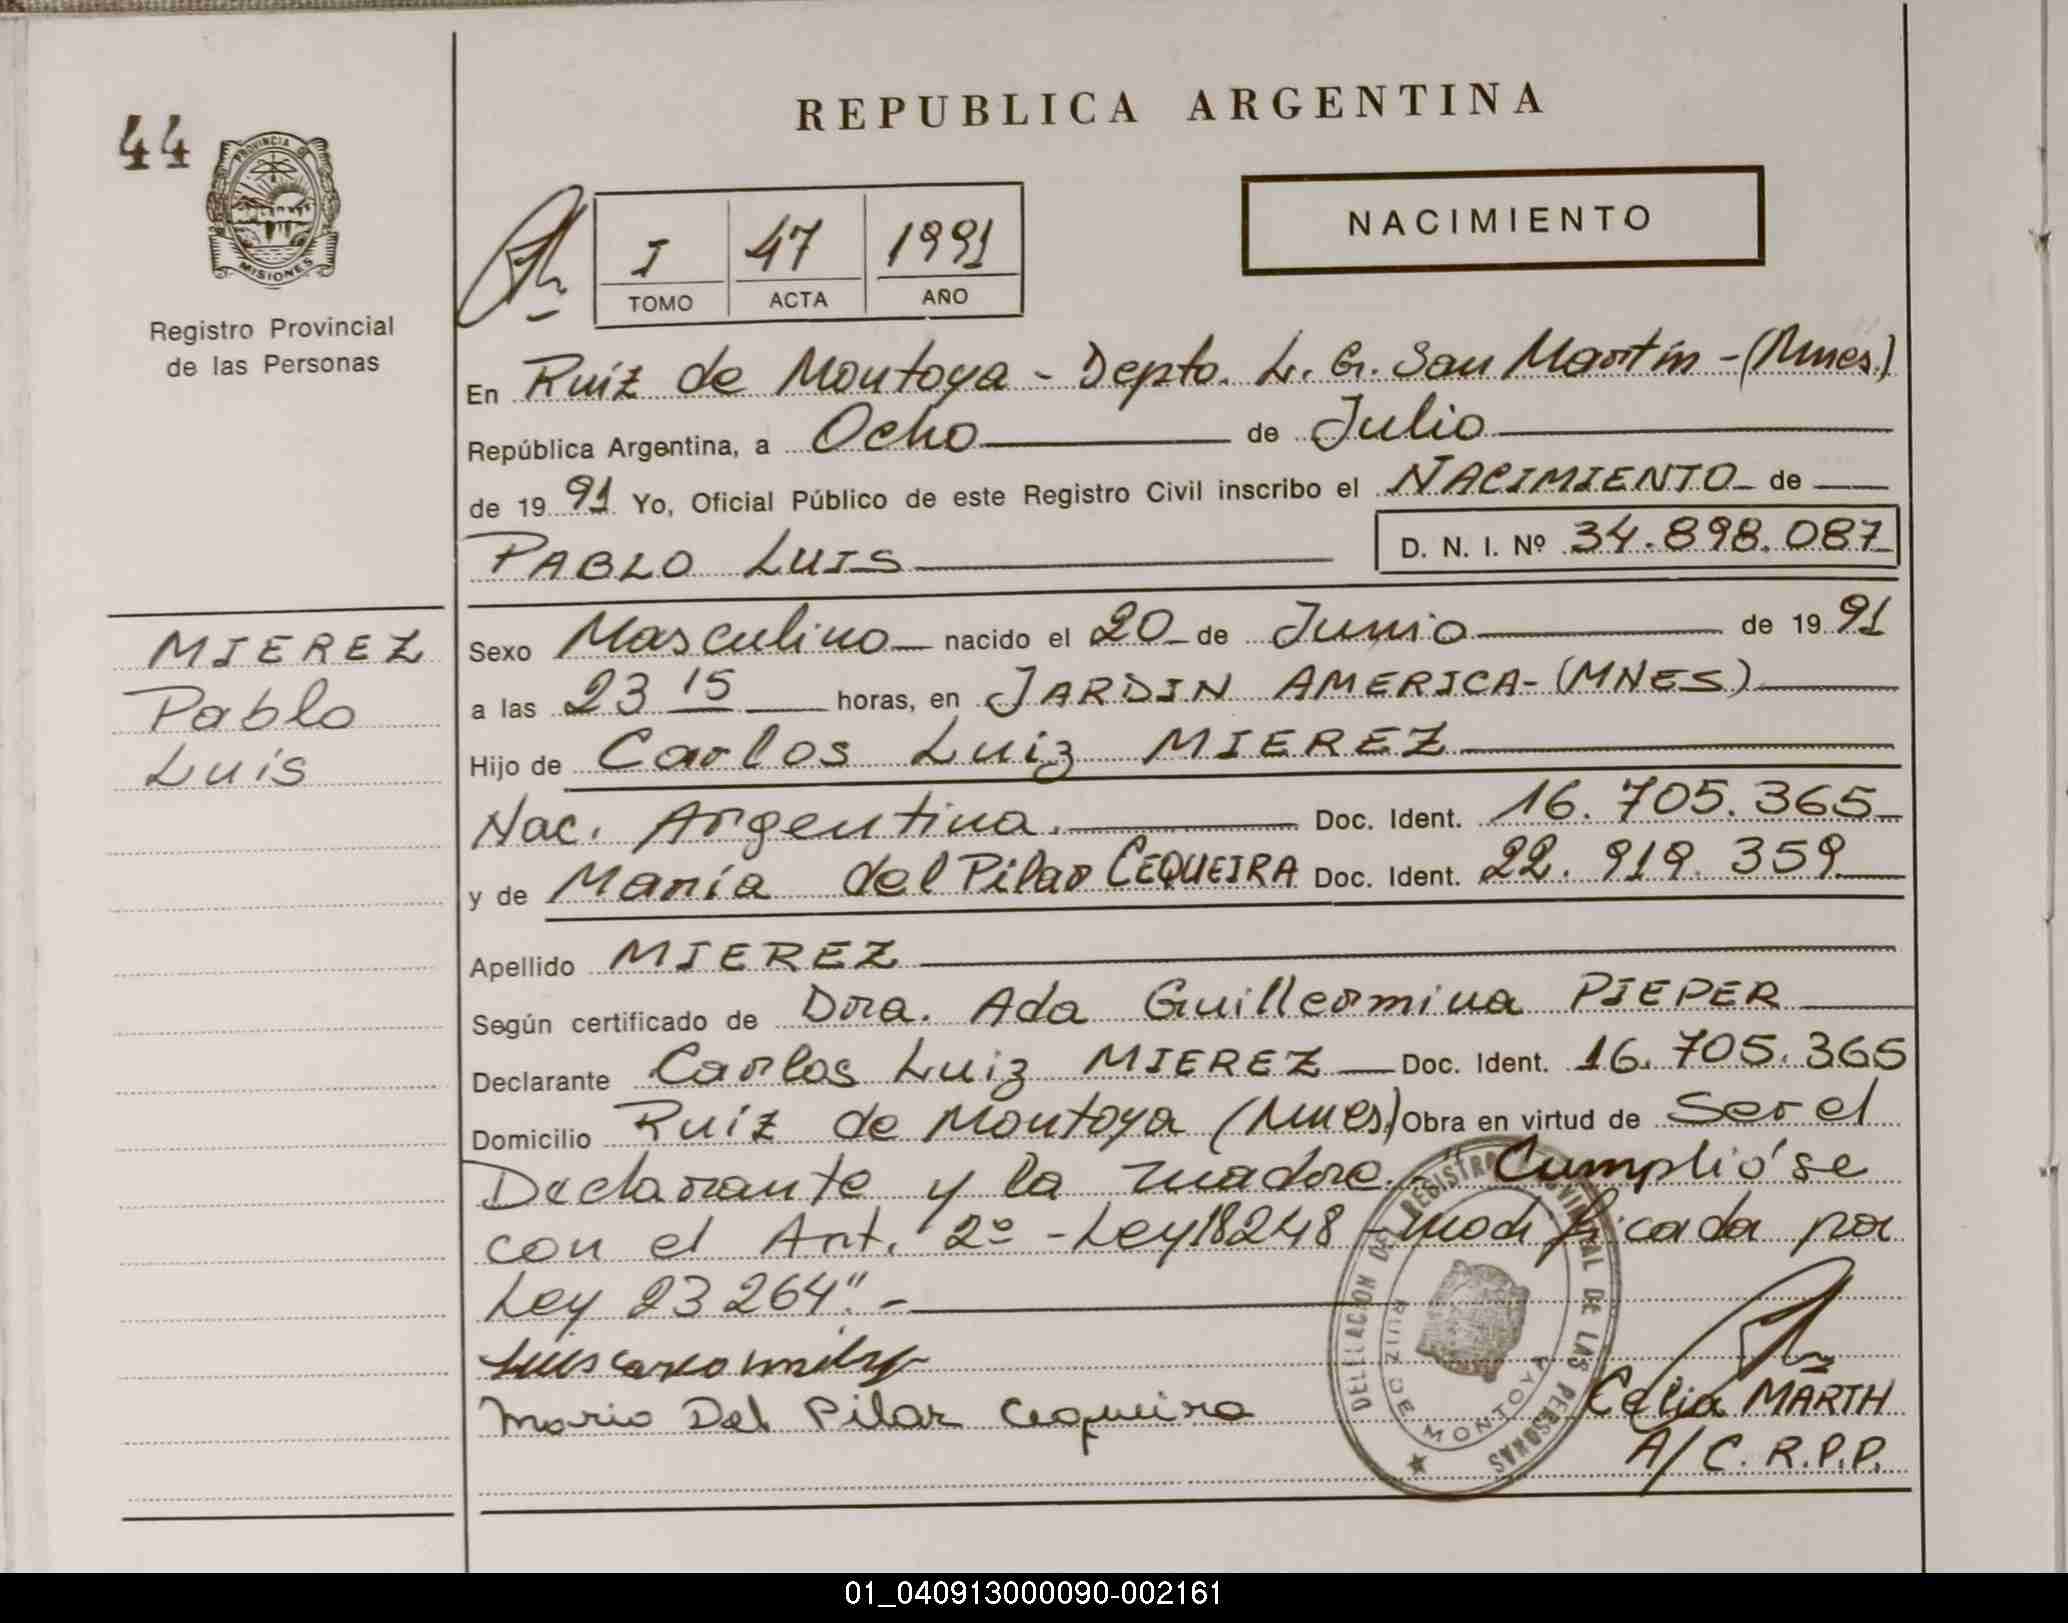 REPUBLICA ARGENTINA
44
PROVINCIA DE
MISIONES
Registro Provincial
de las Personas
I 47 1991
TOMO ACTA AÑO
NACIMIENTO
En Ruíz de Montoya - Depto. L. G. San Martín - (Mnes.)
República Argentina, a Ocho de Julio
de 1991 Yo, Oficial Público de este Registro Civil inscribo el NACIMIENTO de
PABLO LUIS D. N. I. Nº 34.898.087
MIEREZ
Pablo
Luis
Sexo Masculino nacido el 20 de Junio de 1991
a las 23 15 horas, en JARDIN AMERICA - (MNES)
Hijo de Carlos Luiz MIEREZ
Nac. Argentina. Doc. Ident. 16.705.365
y de María del Pilar CEQUEIRA Doc. Ident. 22.919.359
Apellido MIEREZ
Según certificado de Dra. Ada Guillermina PIEPER
Declarante Carlos Luiz MIEREZ Doc. Ident. 16.705.365
Domicilio Ruíz de Montoya (Mnes) Obra en virtud de Ser el
Declarante y la madre. - "Cumplió se
con el Art. 2º - Ley 18248 - modificada por
Ley 23264". -
Mario Del Pilar Cequeira
DELEGACION DEL REGISTRO PROVINCIAL DE LAS PERSONAS
RUIZ DE MONTOYA
Celia MARTH
A/C. R.P.P.
01_040913000090-002161